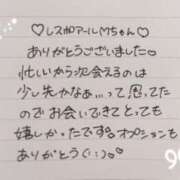 ♡レスポアールMちゃん♡
ありがとうございました♡
忙しいから次会えるのは
少し先かなぁ…って思ってた
のでお会いできてとっても
嬉しかったですオプションも
ありがとう(: ; )♡